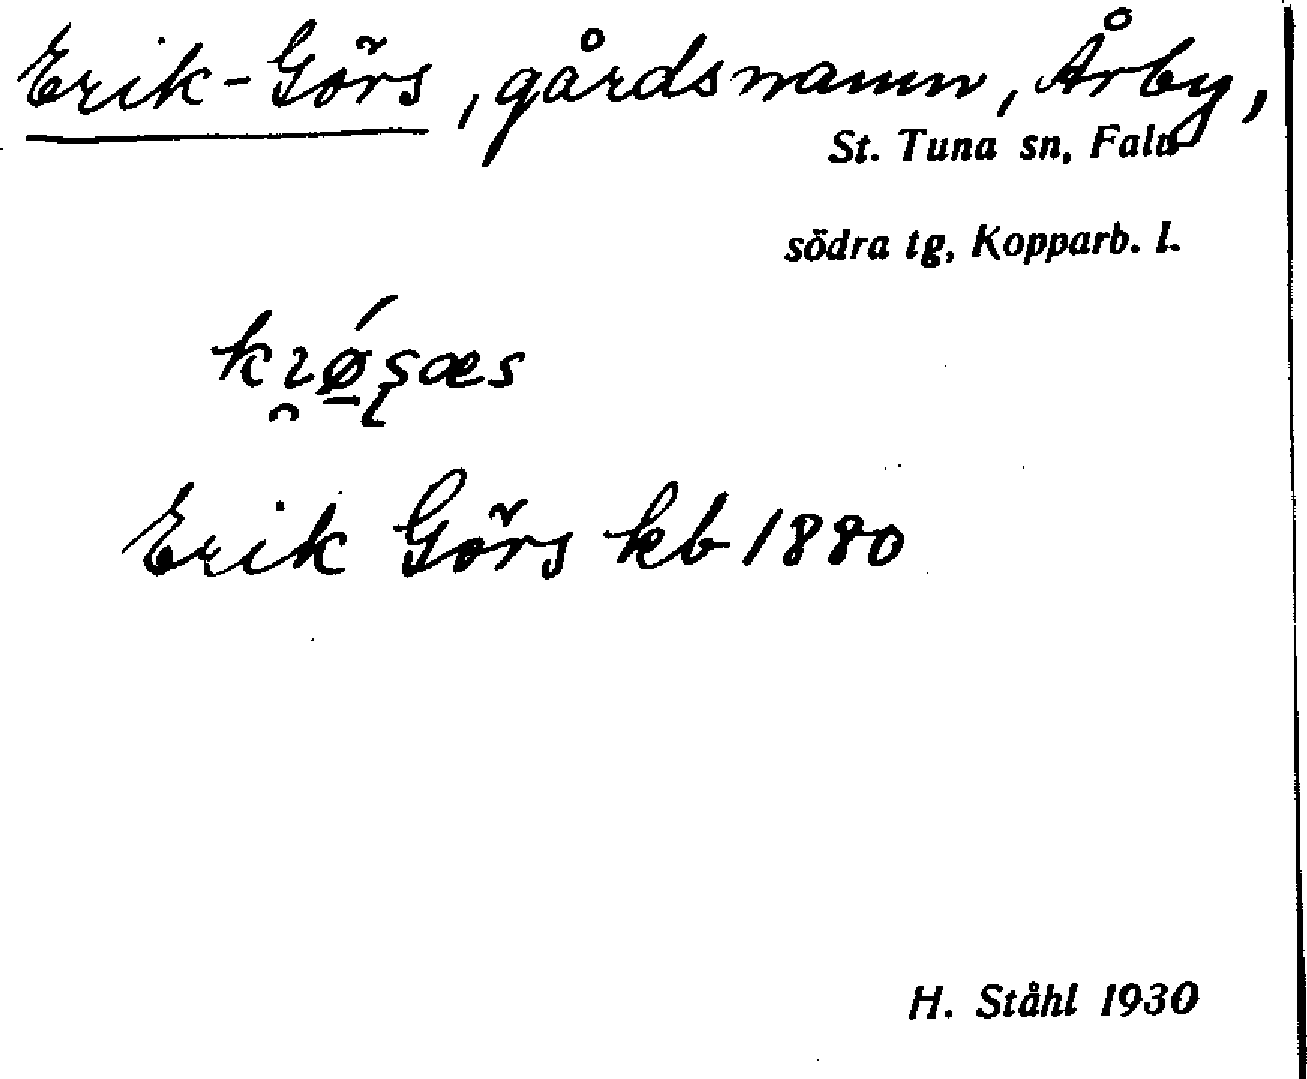 Erik-Görs, gårdsnamn, Årby,
St. Tuna sn, Falu
södra tg, Kopparb. l.
Erik Görs kb 1880
H. Ståhl 1930